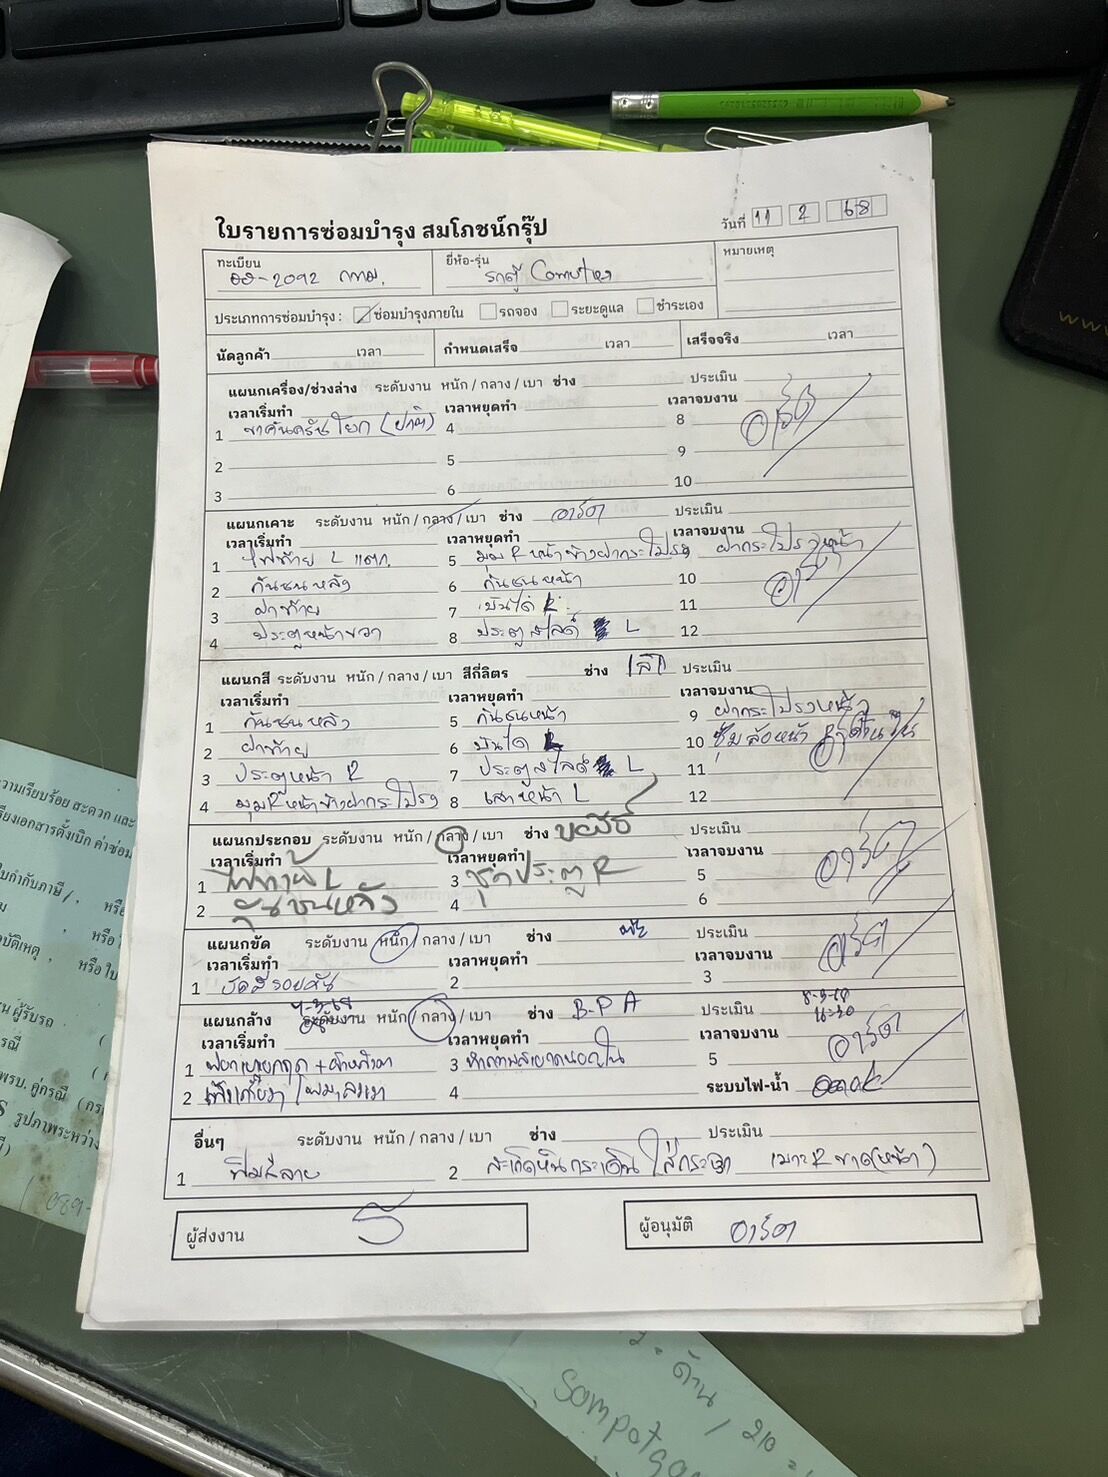 ใบรายการซ่อมบำรุง สมโภชน์กรุ๊ป
วันที่ 11 2 68
ทะเบียน
ยี่ห้อ-รุ่น
หมายเหตุ
ฮฮ-2092 กทม.
รถตู้ Commuter
ประเภทการซ่อมบำรุง : ซ่อมบำรุงภายใน รถจอง ระยะดูแล ชำระเอง
นัดลูกค้า เวลา กำหนดเสร็จ เวลา เสร็จจริง เวลา
แผนกเครื่อง/ช่วงล่าง ระดับงาน หนัก / กลาง / เบา ช่าง ประเมิน
เวลาเริ่มทำ เวลาหยุดทำ เวลาจบงาน
1 ขาคันครัชโยก 4 8
2 5 9
3 6 10
แผนกเคาะ ระดับงาน หนัก / กลาง / เบา ช่าง อาร์ต ประเมิน
เวลาเริ่มทำ เวลาหยุดทำ เวลาจบงาน
1 ไฟท้าย L แตก 5 มุม R หน้าข้างฝากระโปรง 9 ฝากระโปรงหน้า
2 กันชนหลัง 6 กันชนหน้า 10
3 ฝาท้าย 7 บันได 11
4 ประตูหน้าขวา 8 ประตูสไลด์ L 12
แผนกสี ระดับงาน หนัก / กลาง / เบา สีกี่ลิตร ช่าง ประเมิน
เวลาเริ่มทำ เวลาหยุดทำ เวลาจบงาน
1 กันชนหลัง 5 กันชนหน้า 9 ฝากระโปรงหน้า
2 ฝาท้าย 6 บันได 10 ซุ้มล้อหน้า
3 ประตูหน้า R 7 ประตูสไลด์ L 11
4 มุม R หน้าข้างฝากระโปรง 8 เสาหน้า L 12
แผนกประกอบ ระดับงาน หนัก / กลาง / เบา ช่าง ประเมิน
เวลาเริ่มทำ เวลาหยุดทำ เวลาจบงาน
1 ไฟท้าย L 3 ชุดประตู R 5
2 กันชนหลัง 4 6
แผนกขัด ระดับงาน หนัก / กลาง / เบา ช่าง ประเมิน
เวลาเริ่มทำ เวลาหยุดทำ เวลาจบงาน
1 ขัดสีรอบคัน 2 3
แผนกล้าง ระดับงาน หนัก / กลาง / เบา ช่าง B-P A ประเมิน
เวลาเริ่มทำ เวลาหยุดทำ เวลาจบงาน
1 3 ทำความสะอาดนอกใน 5
2 4 ระบบไฟ-น้ำ
อื่นๆ ระดับงาน หนัก / กลาง / เบา ช่าง ประเมิน
1 ฟิมส์ลาย 2 สะเกิดหินกระเด็นใส่กระจก
ผู้ส่งงาน
ผู้อนุมัติ อาร์ต
ผู้รับรถ
Sompotga